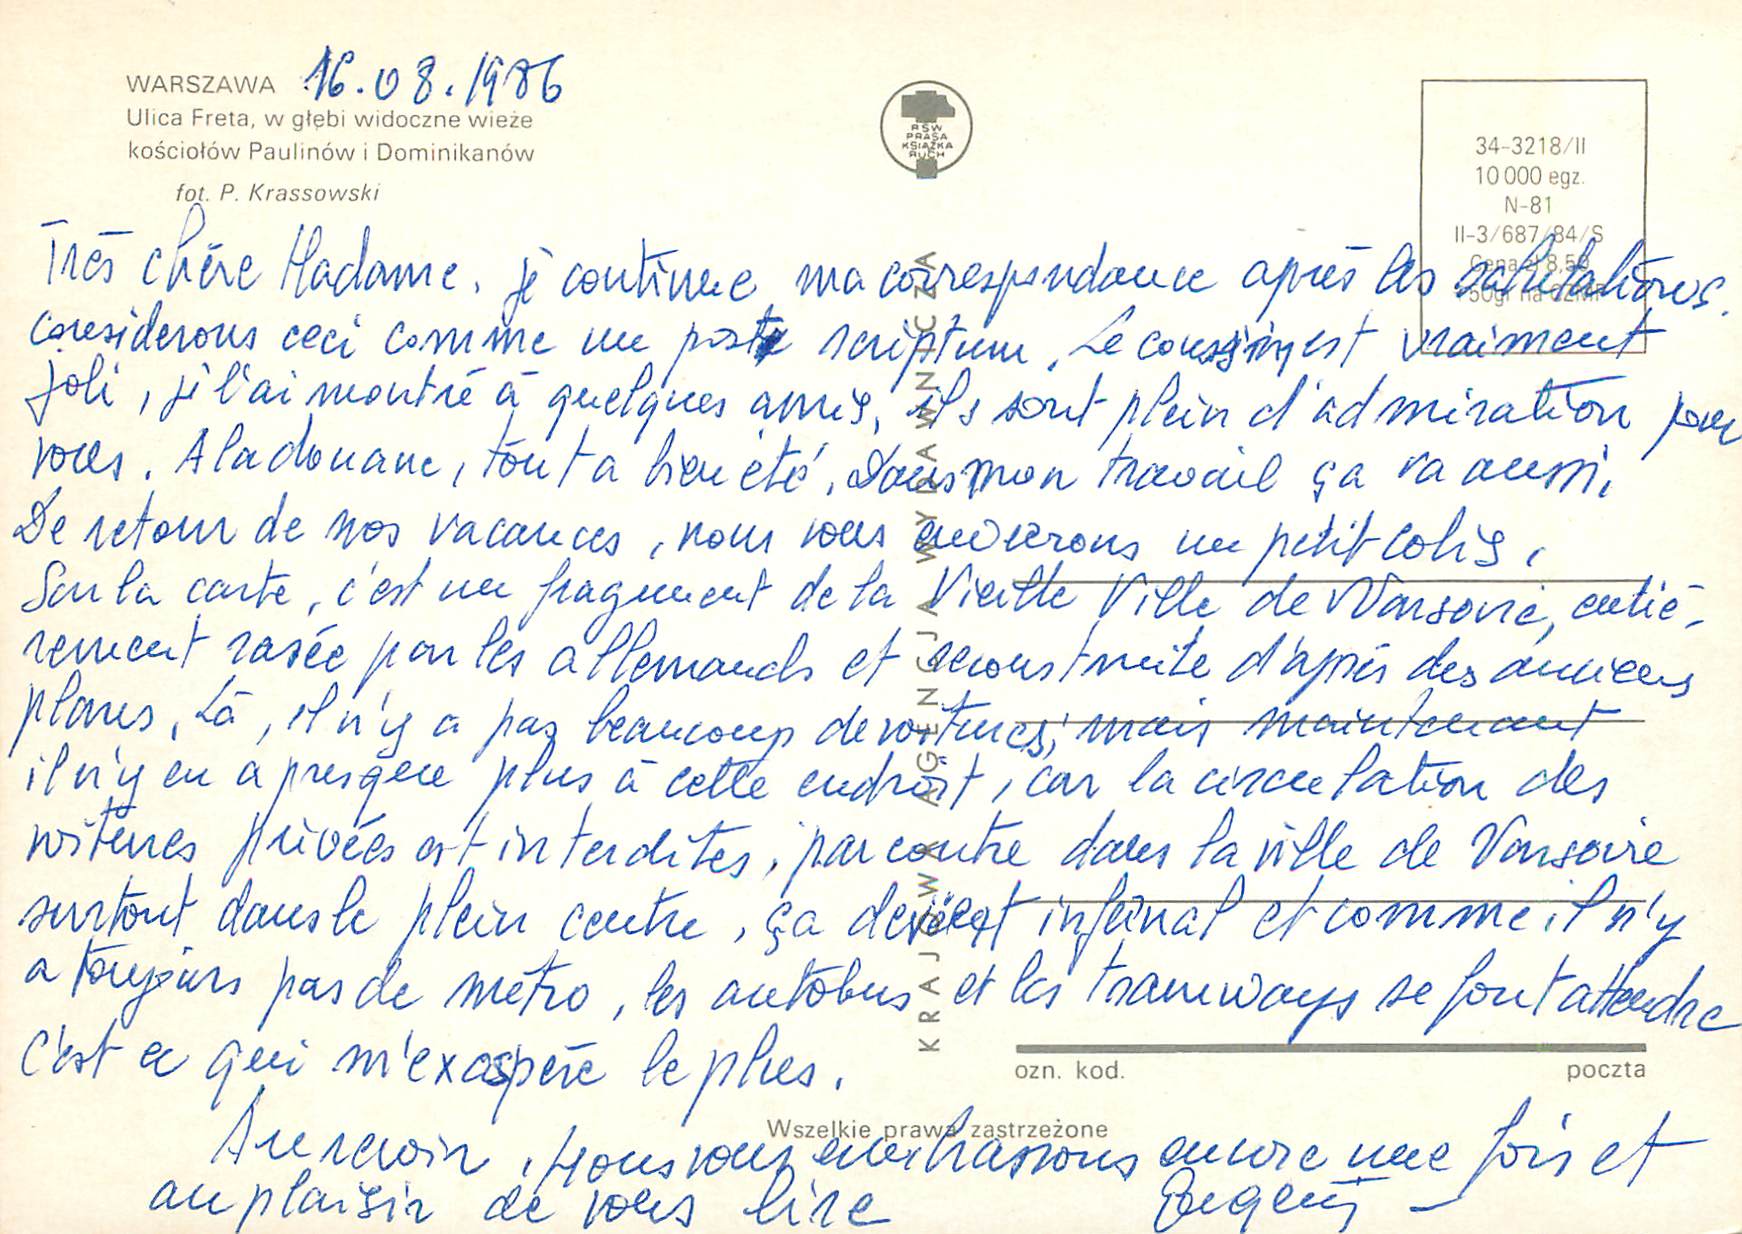 WARSZAWA 16.08.1986
Ulica Freta, w głębi widoczne wieże
kościołów Paulinów i Dominikanów
fot. P. Krassowski
RSW
PRASA
KSIĄŻKA
RUCH
34-3218/II
10 000 egz.
N-81
II-3/687/84/S
Cena zł 8,50
+50gr na CZMP
Très chère Madame. je continue ma correspondance après les salutations.
considerons ceci comme un post scriptum. Le coussin est vraiment
joli, je l'ai montré à quelques amis, ils sont plein d'admiration pour
vous. A la douane, tout a bien été. Dans mon travail ça va aussi.
De retour de nos vacances, nous vous enverrons un petit colis.
Sur la carte, c'est un fragment de la Vieille Ville de Varsovie, entiè-
rement rasée par les allemands et reconstruite d'après des anciens
plans. Là, il n'y a pas beaucoup de voitures, mais maintenant
il n'y en a presque plus à cette endroit, car la circulation des
voitures privées est interdites, par contre dans la ville de Varsovie
surtout dans le plein centre, ça devient infernal et comme il n'y
a toujours pas de métro, les autobus et les tramways se font attendre
c'est ce qui m'exaspère le plus.
Au revoir. Nous vous embrassons encore une fois et
au plaisir de vous lire
KRAJOWA AGENCJA WYDAWNICZA
ozn. kod.
poczta
Wszelkie prawa zastrzeżone